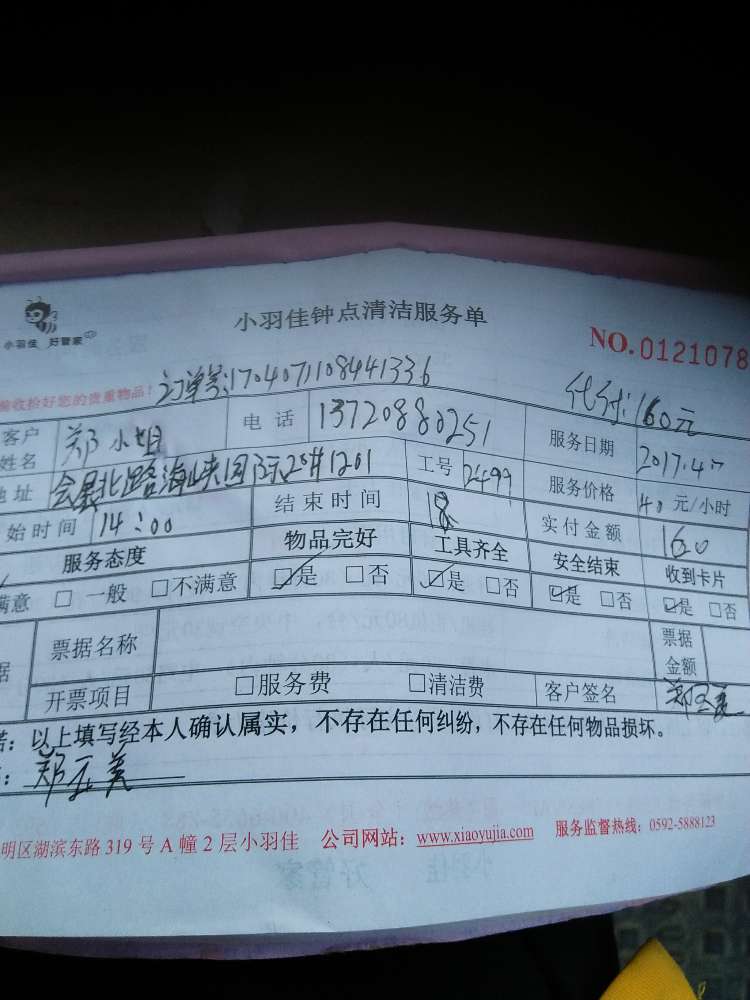 小羽佳 好管家
小羽佳钟点清洁服务单
NO.0121078
验收拾好您的贵重物品！ 订单号:1704071108441336 代付:160元
客户姓名 郑小姐 电话 13720880251 服务日期 2017.4.7
地址 会展北路海峡国际20#1201 工号 2499 服务价格 40元/小时
始时间 14:00 结束时间 18 实付金额 160
服务态度 物品完好 工具齐全 安全结束 收到卡片
满意 □一般 □不满意 ☑是 □否 ☑是 □否 ☑是 □否 ☑是 □否
据 票据名称 票据金额
开票项目 □服务费 □清洁费 客户签名 郑
诺：以上填写经本人确认属实，不存在任何纠纷，不存在任何物品损坏。
郑 美
明区湖滨东路319号A幢2层小羽佳 公司网站：www.xiaoyujia.com 服务监督热线：0592-5888123